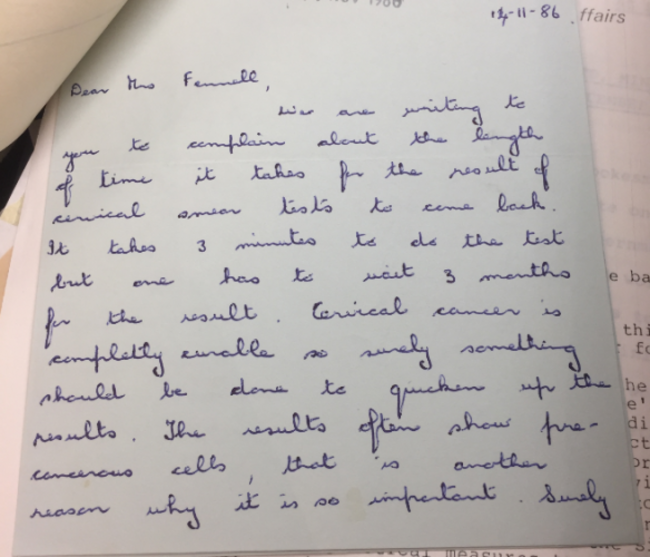 14-11-86
ffairs
Dear Mrs Fennell,
We are writing to
you to complain about the length
of time it takes for the result of
cervical smear tests to come back.
It takes 3 minutes to do the test
but one has to wait 3 months
for the result. Cervical cancer is
completly curable so surely something
should be done to quicken up the
results. The results often show pre-
cancerous cells, that is another
reason why it is so important. Surely
e ba
thi
fo
he
e'
di
measures